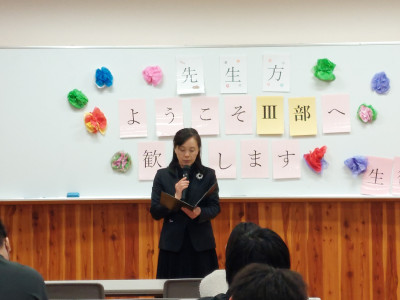 先生方
ようこそⅢ部へ
歓 します
生